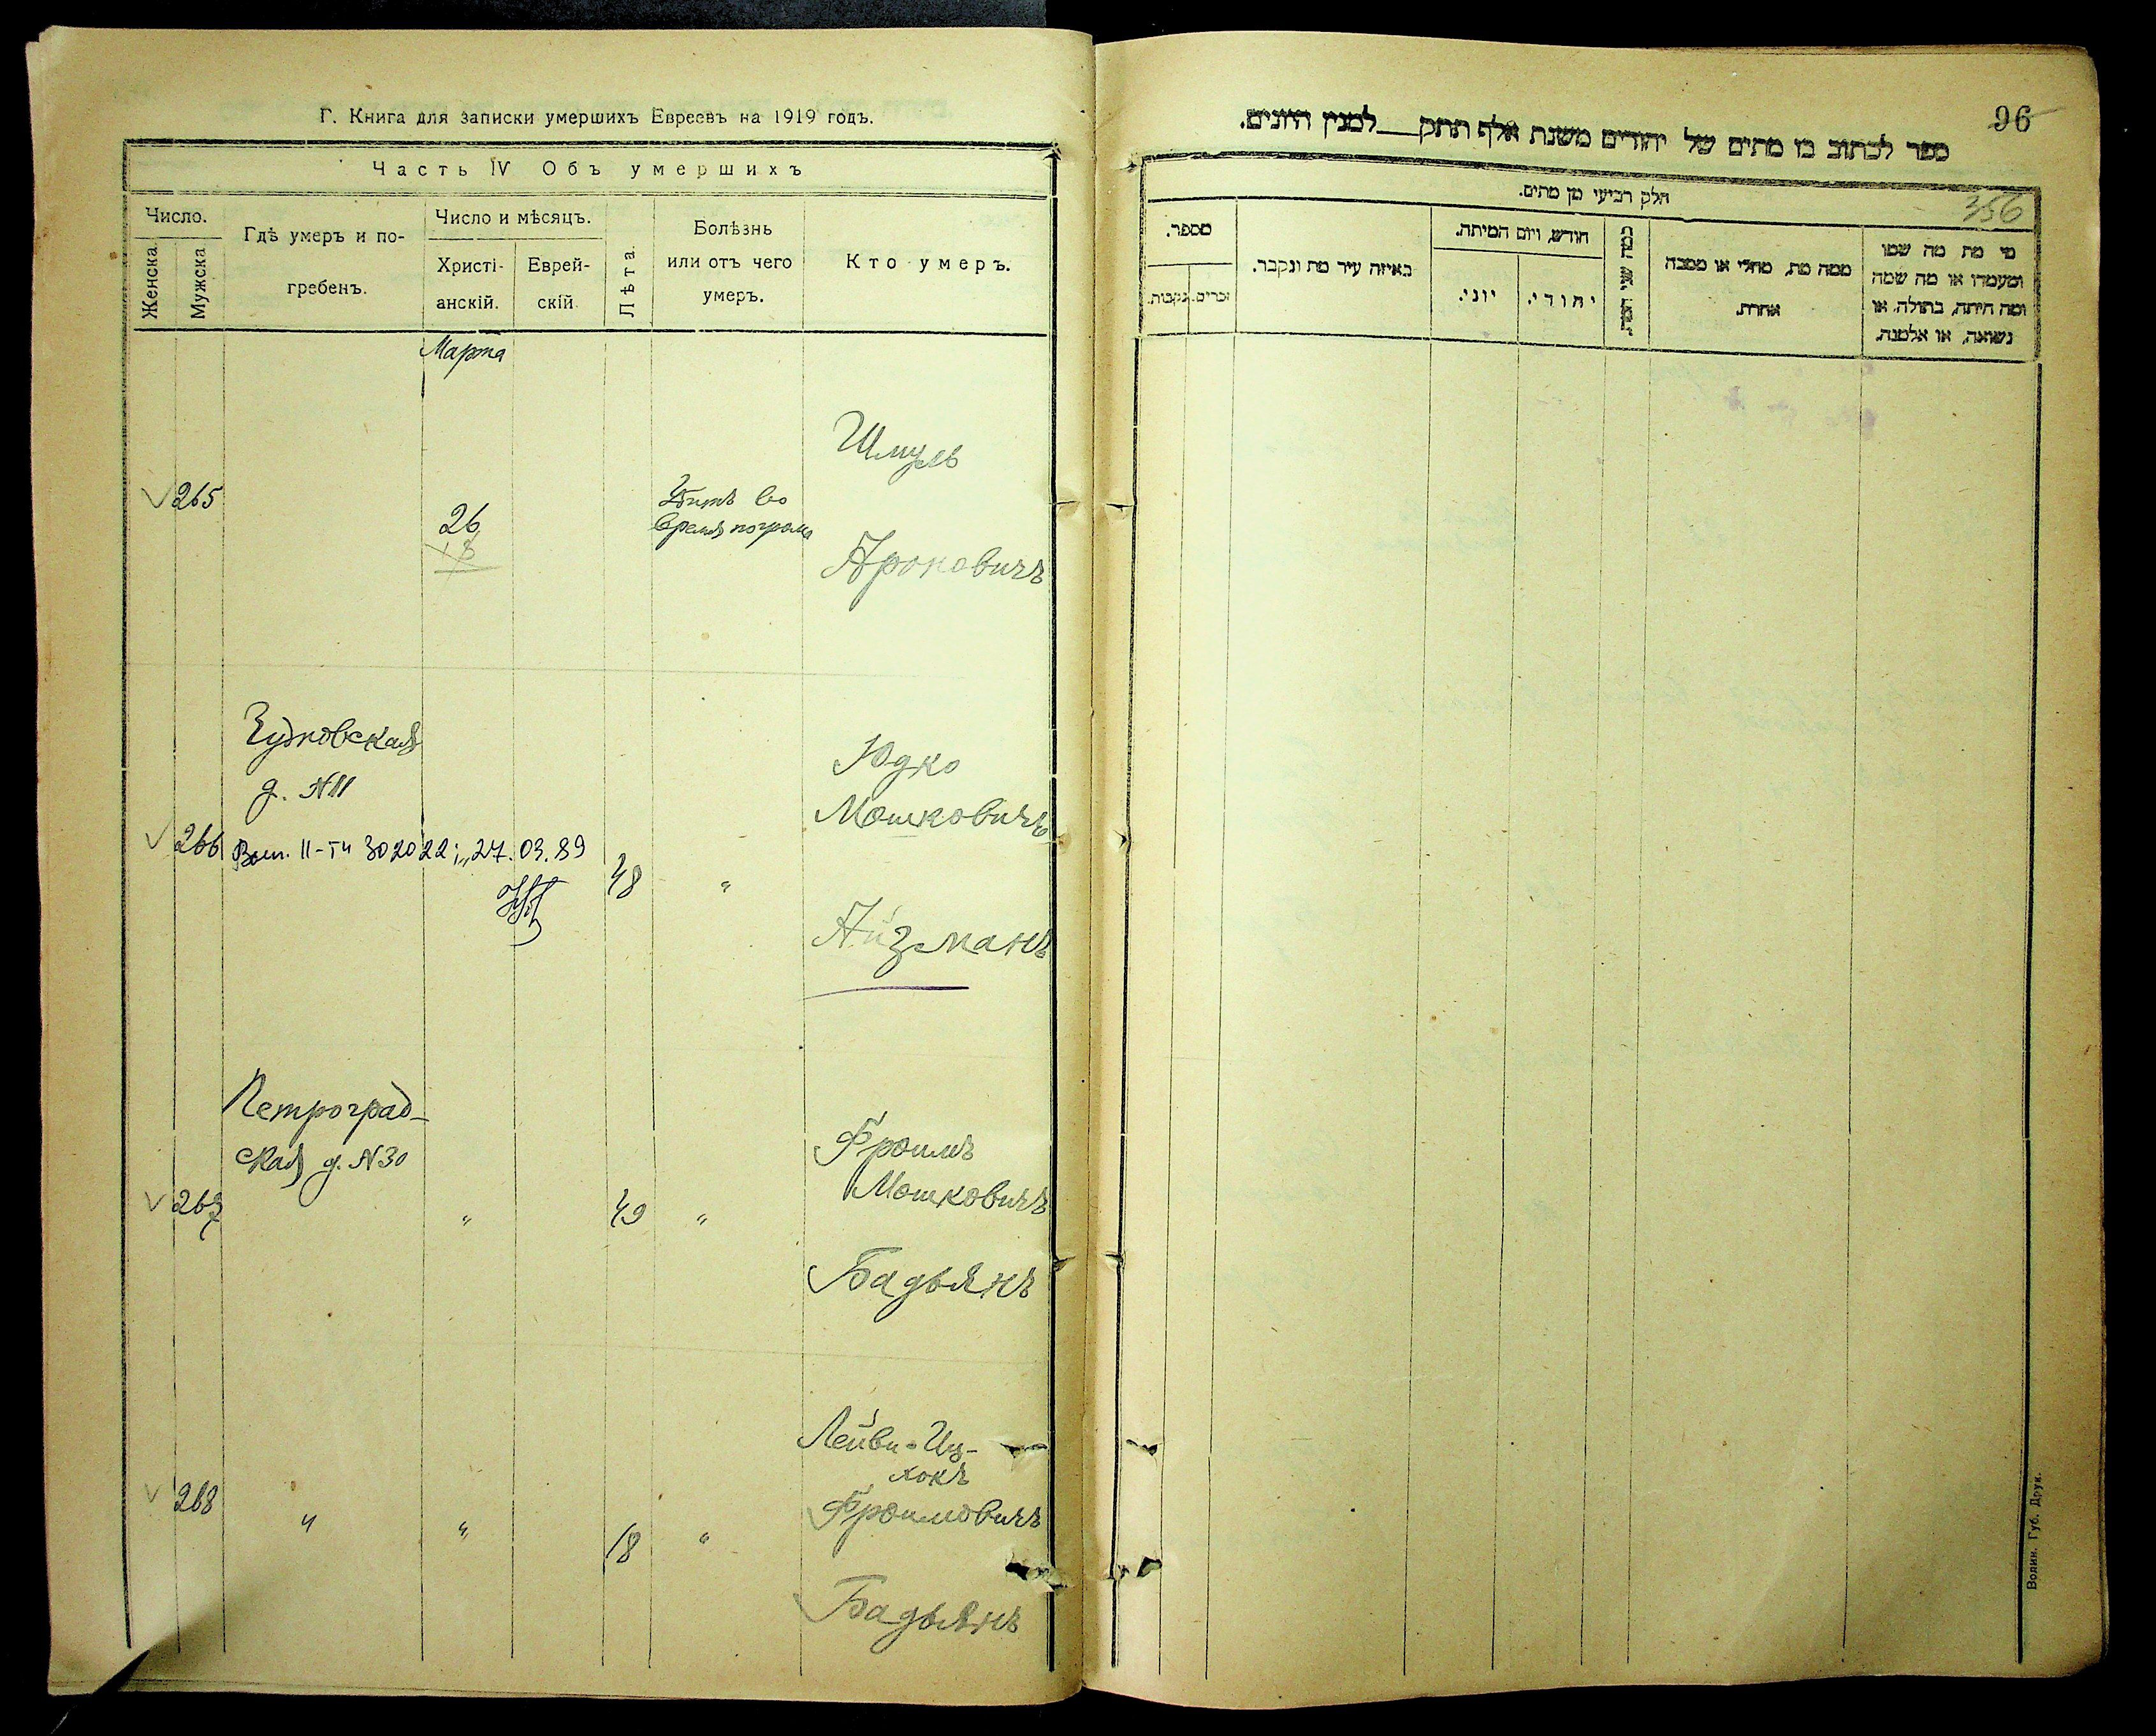 Г. Книга для записки умершихъ Евреевъ на 1919 годъ.
Часть IV Объ умершихъ
Число.
Женска
Мужска
Гдѣ умеръ и по-
гребенъ.
Число и мѣсяцъ.
Христі-
анскій.
Еврей-
скій
Лѣта.
Болѣзнь
или отъ чего
умеръ.
Кто умеръ.
Марта
265
26
18
Убитъ во
время погрома
Шмуль
Ароновичъ
Чудновская
д. №11
266
48
"
Юдко
Мошковичъ
Айзманъ
302022; 27.03.89
Петроград-
ская д. №30
267
"
49
"
Фроимъ
Мошковичъ
Бадьянъ
268
"
"
18
"
Лейви-Иц-
хокъ
Фроимовичъ
Бадьянъ
96
ספר לכתוב בו מתים של יהודים משנת אלף תתק__ למנין היונים.
חלק רביעי מן מתים.
356
מספר.
נקבות.
זכרים.
באיזה עיר מת ונקבר.
חודש, ויום המיתה.
יוני.
יהודי.
כמה שני המת.
ממה מת, מחלי או מסבה
אחרת.
מי מת מה שמו
ומעמדו או מה שמה
ומה היתה, בתולה, או
נשואה, או אלמנה.
Волин. Губ. Друк.